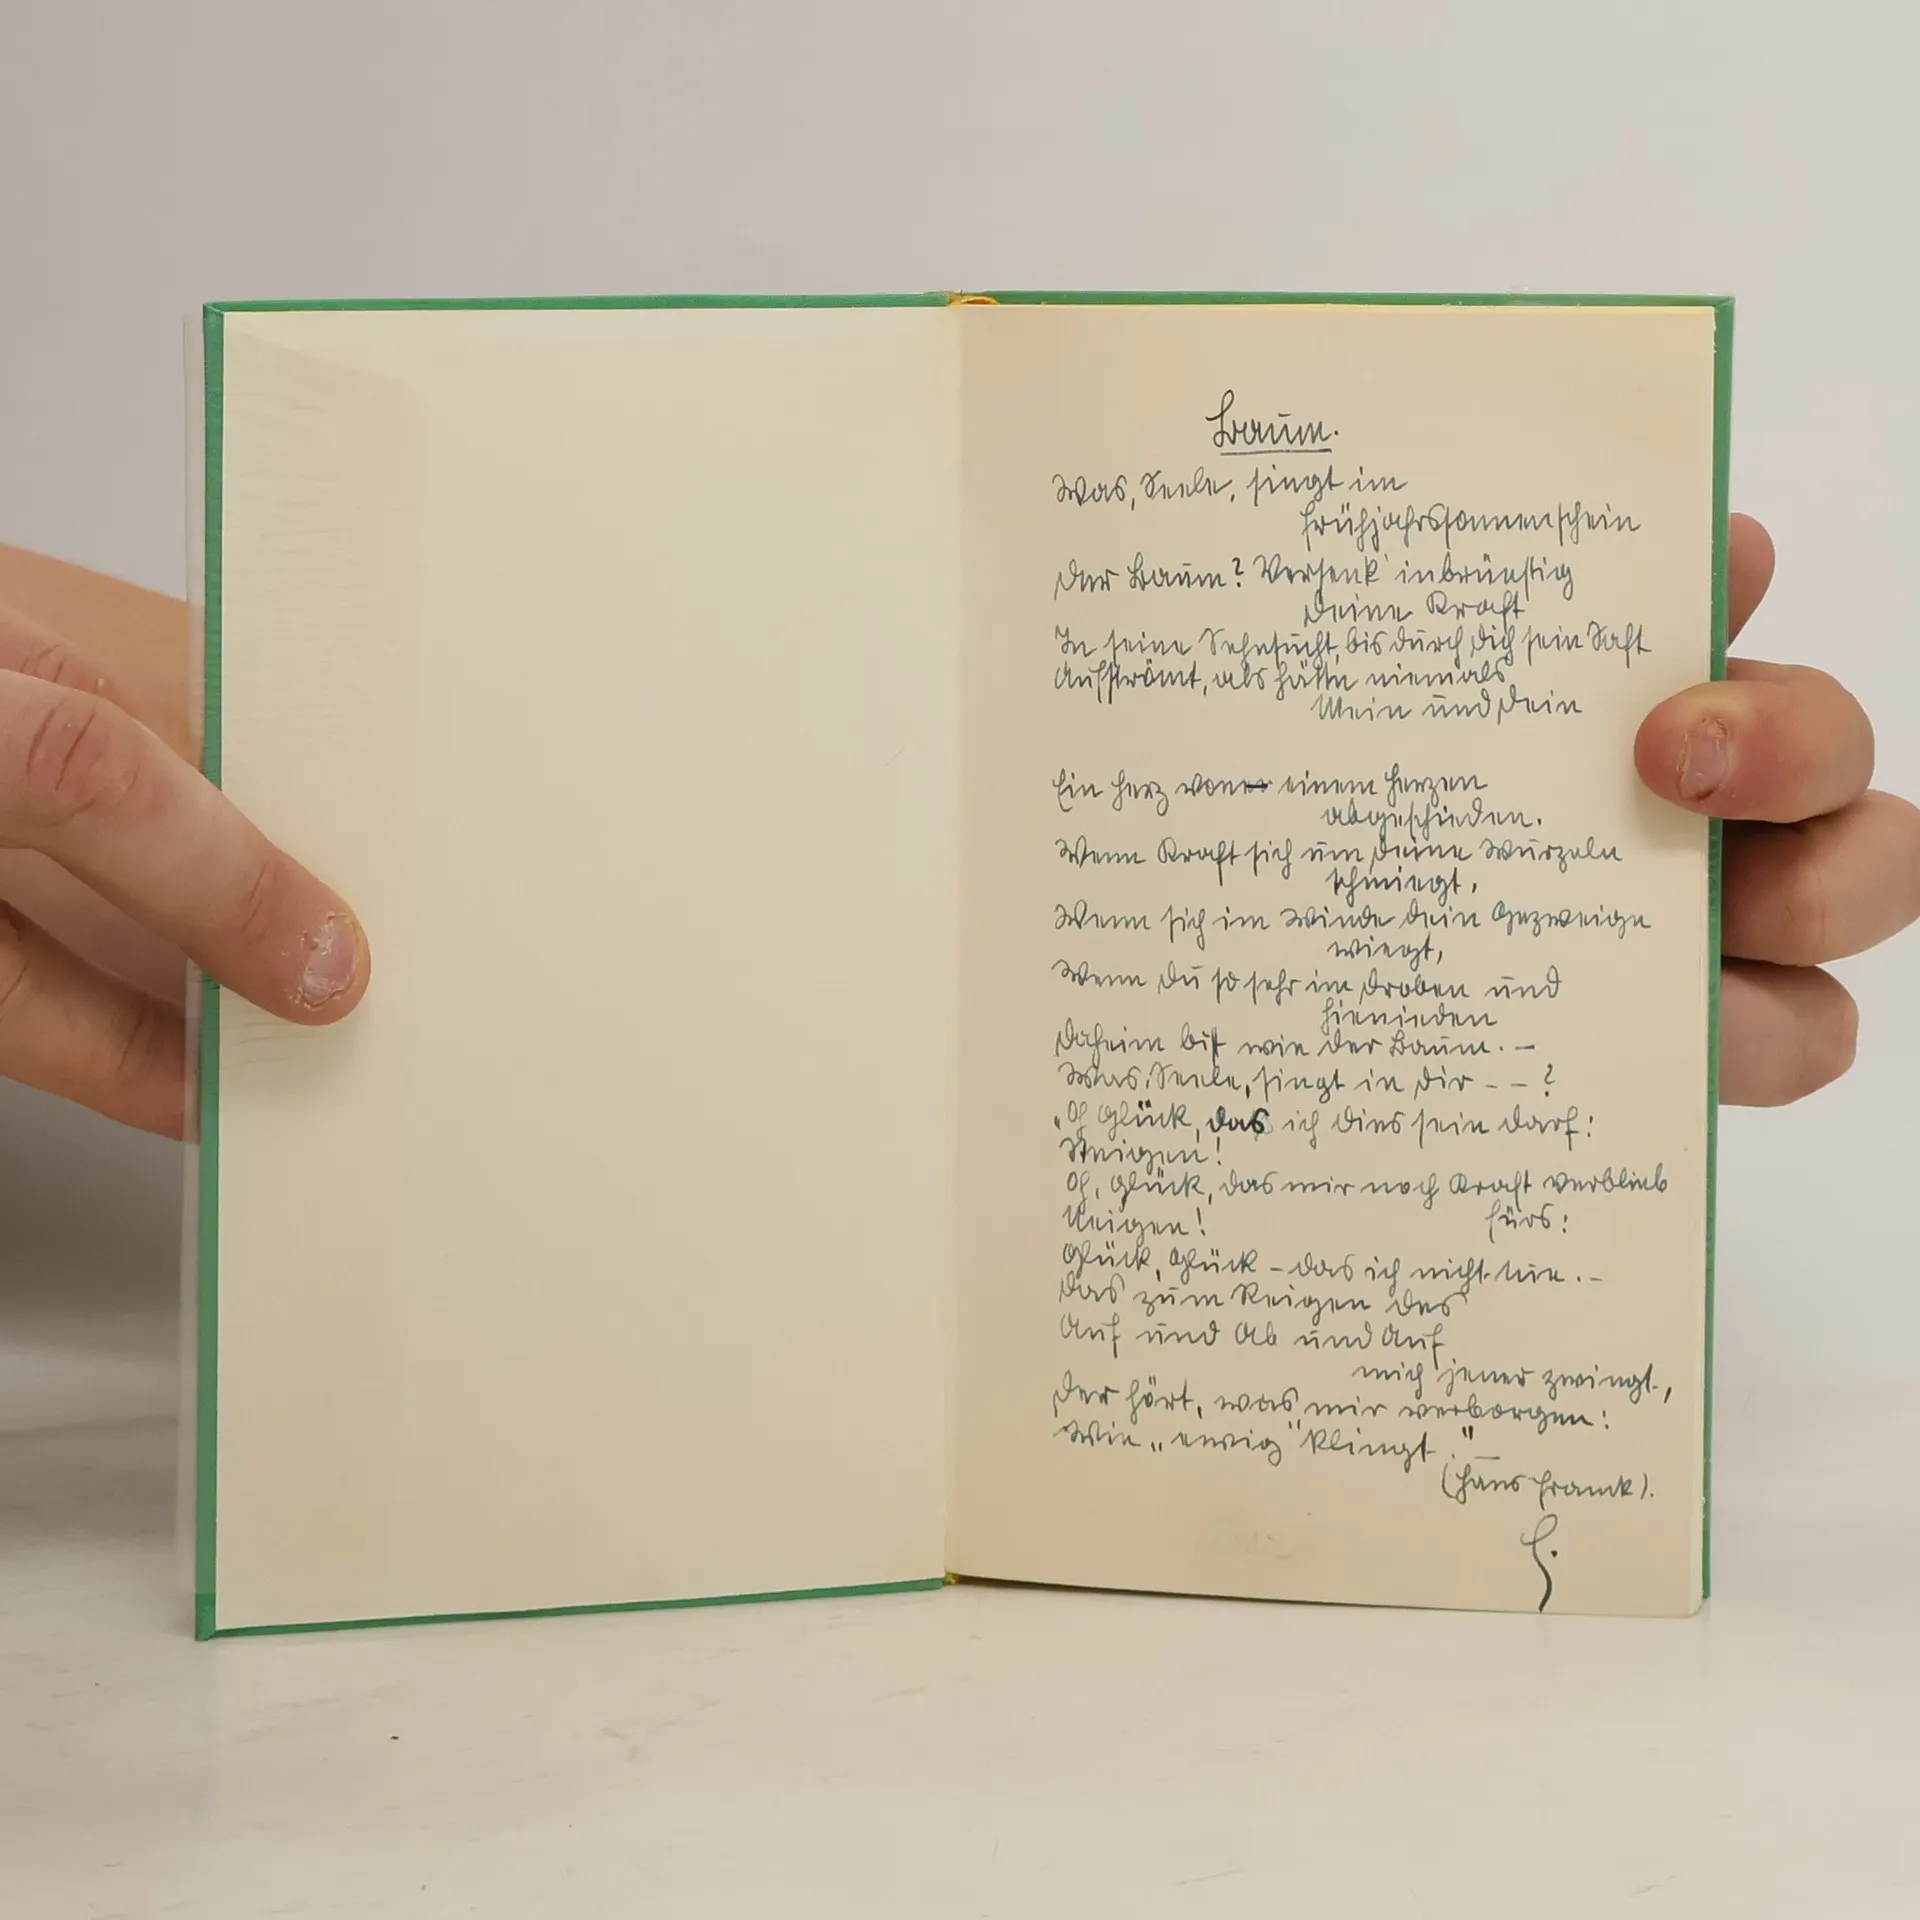 Baum.
Was, Seele, singt im
Frühjahrssonnenschein
Der Baum? Versenk' inbrünstig
Deine Kraft
In seine Sehnsucht, bis durch Dich sein Saft
Aufströmt, als hätte niemals
Mein und Dein
Ein Herz von einem Herzen
abgeschieden.
Wenn Kraft sich um Deine Wurzeln
schmiegt,
Wenn sich im Winde dein Gezweige
wiegt,
Wenn Du so sehr im Droben und
Hienieden
Daheim bist wie der Baum. –
Was, Seele, singt in Dir – – ?
„Oh Glück, das ich dies sein darf:
Steigen!
Oh, Glück, das mir noch Kraft verblieb
Neigen! fürs:
Glück, Glück – das ich nicht nie. –
Das zum Reigen des
Auf und Ab und Auf
mich jener zwingt,
Der hört, was mir verborgen:
Wie „ewig" klingt." –
(Hans Franck).